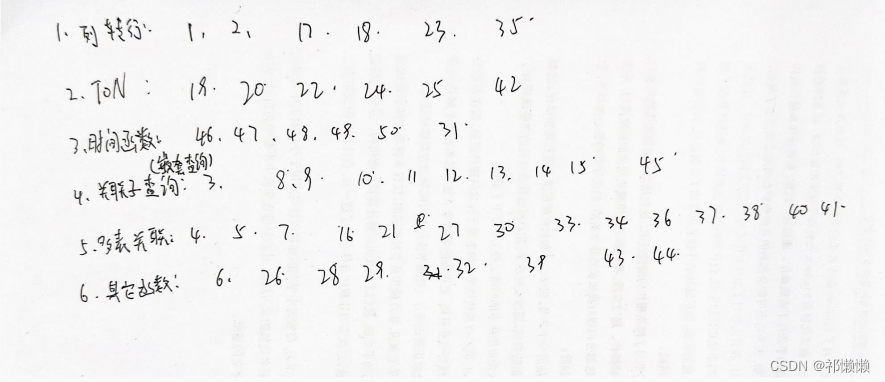 1、列转行: 1、 2、 17. 18. 23. 35.
2. TON: 19. 20 22. 24. 25 42
3.时间函数: 46、47、48、49. 50 31.
(嵌套查询)
4、关联子查询: 3. 8、9. 10. 11 12. 13. 14 15 45
5.多表关联: 4. 5. 7. 16 21 27 30 33. 34 36 37. 38 40 41.
6.其它函数: 6. 26 28 29. 32. 39 43. 44.
CSDN @祁懒懒